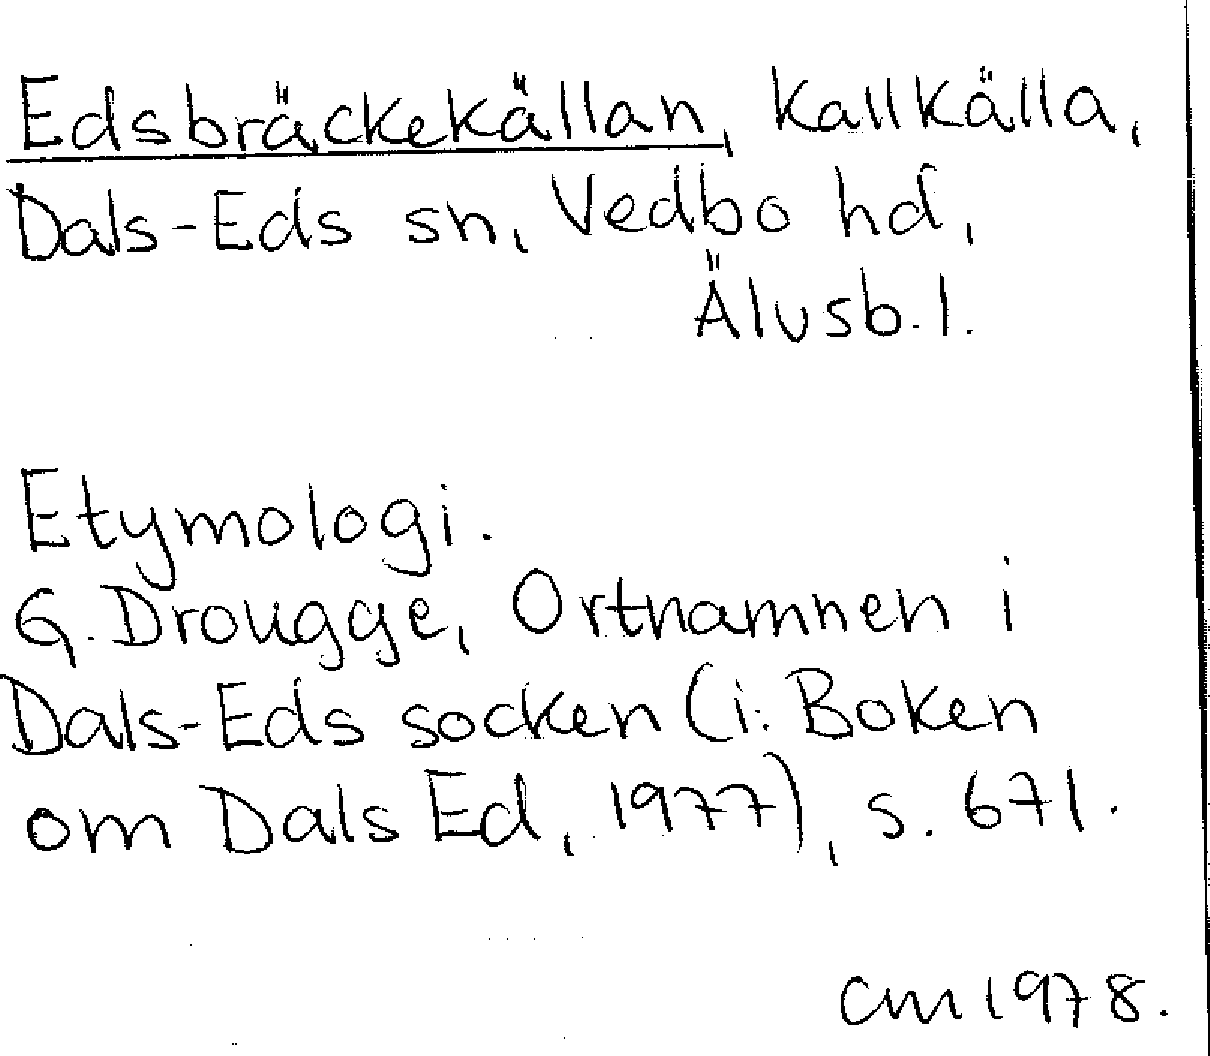 Edsbräckekällan, kallkälla,
Dals-Eds sn, Vedbo hd,
Älvsb. l.
Etymologi.
G. Drougge, Ortnamnen i
Dals-Eds socken (i: Boken
om Dals Ed, 1977), s. 671.
CM 1978.